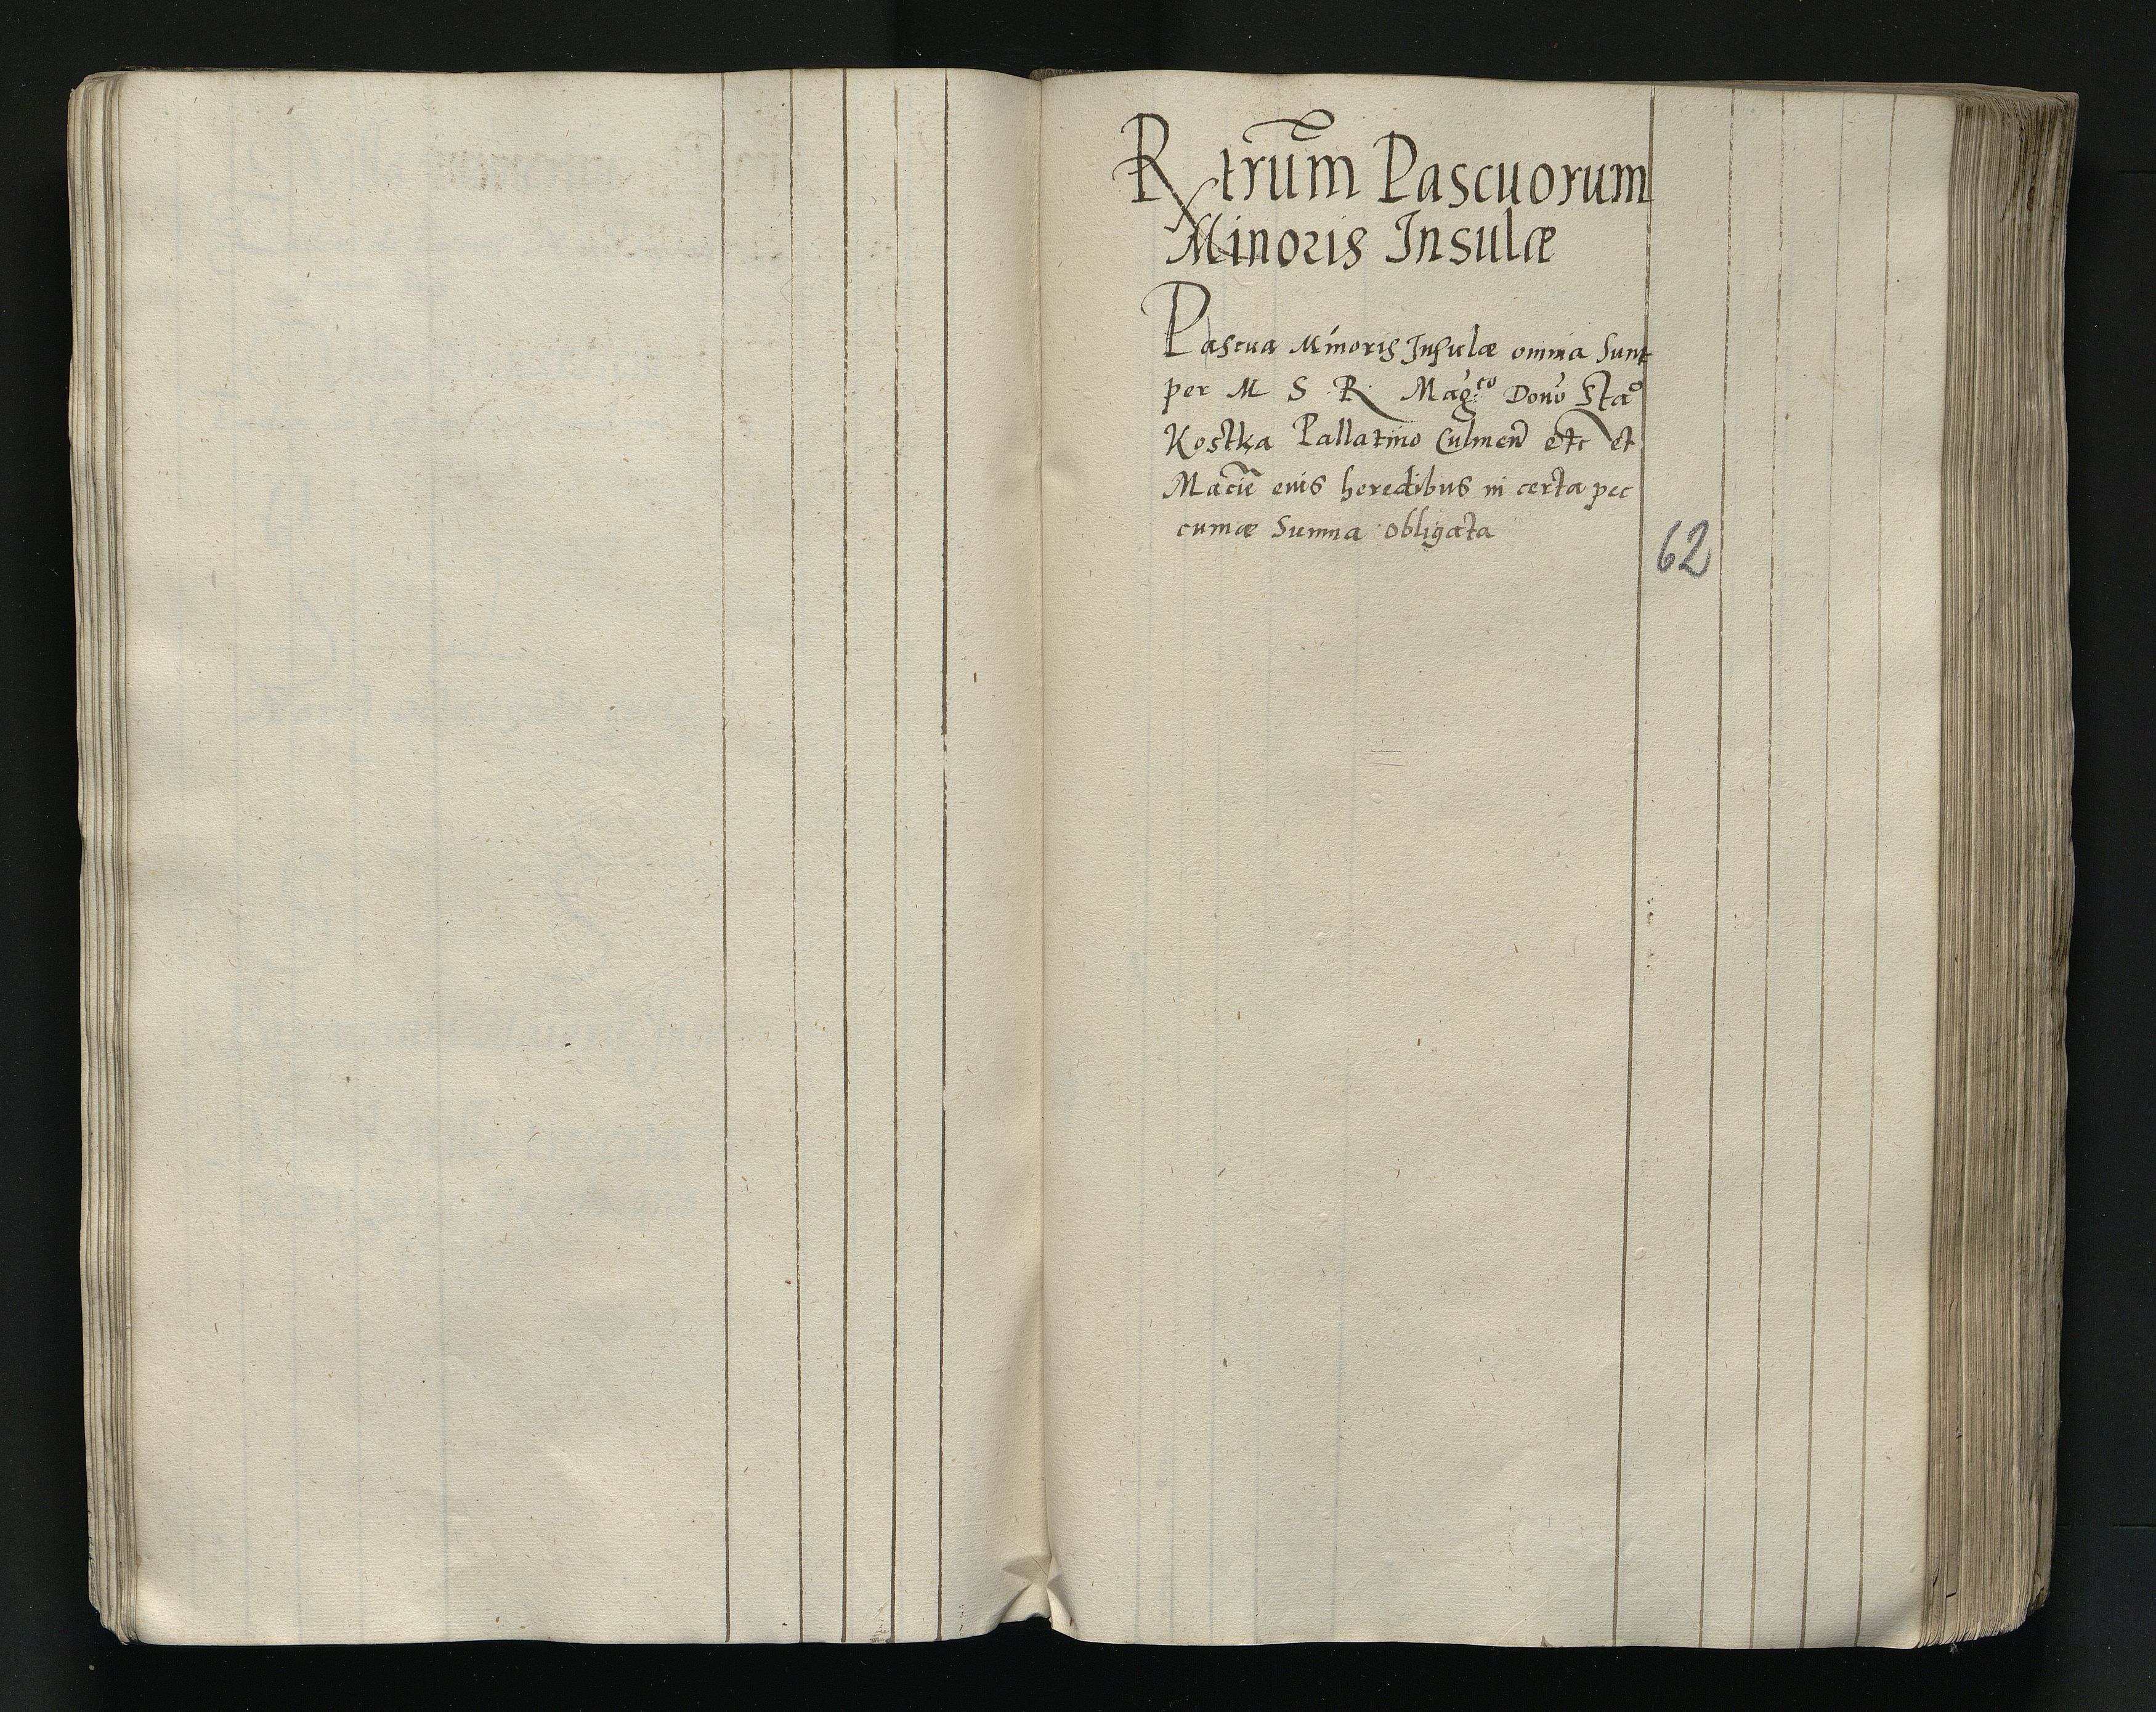 Rtrum Pascuorum
Minoris Insulæ
Pascua Minoris Insulæ omnia sunt
per M S R Mag:co Dono Stao
Kostka Pallatino Culmen etc et
eius heredibus in certa pec
cuniæ Summa obligata
62